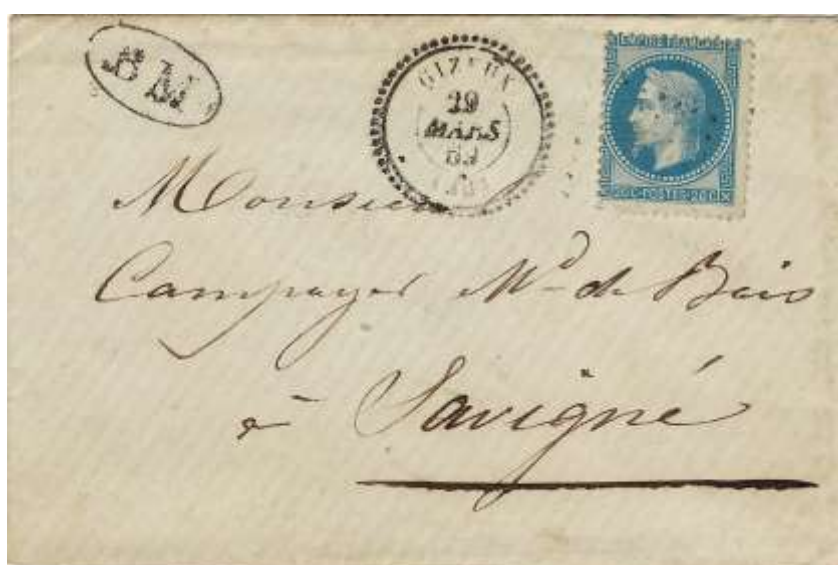 BM
GIZEUX
29
MARS
69
(36)
EMPIRE FRANÇAIS
20C·POSTES·20C
Monsieur
Campayer Md de Bois
à Savigné